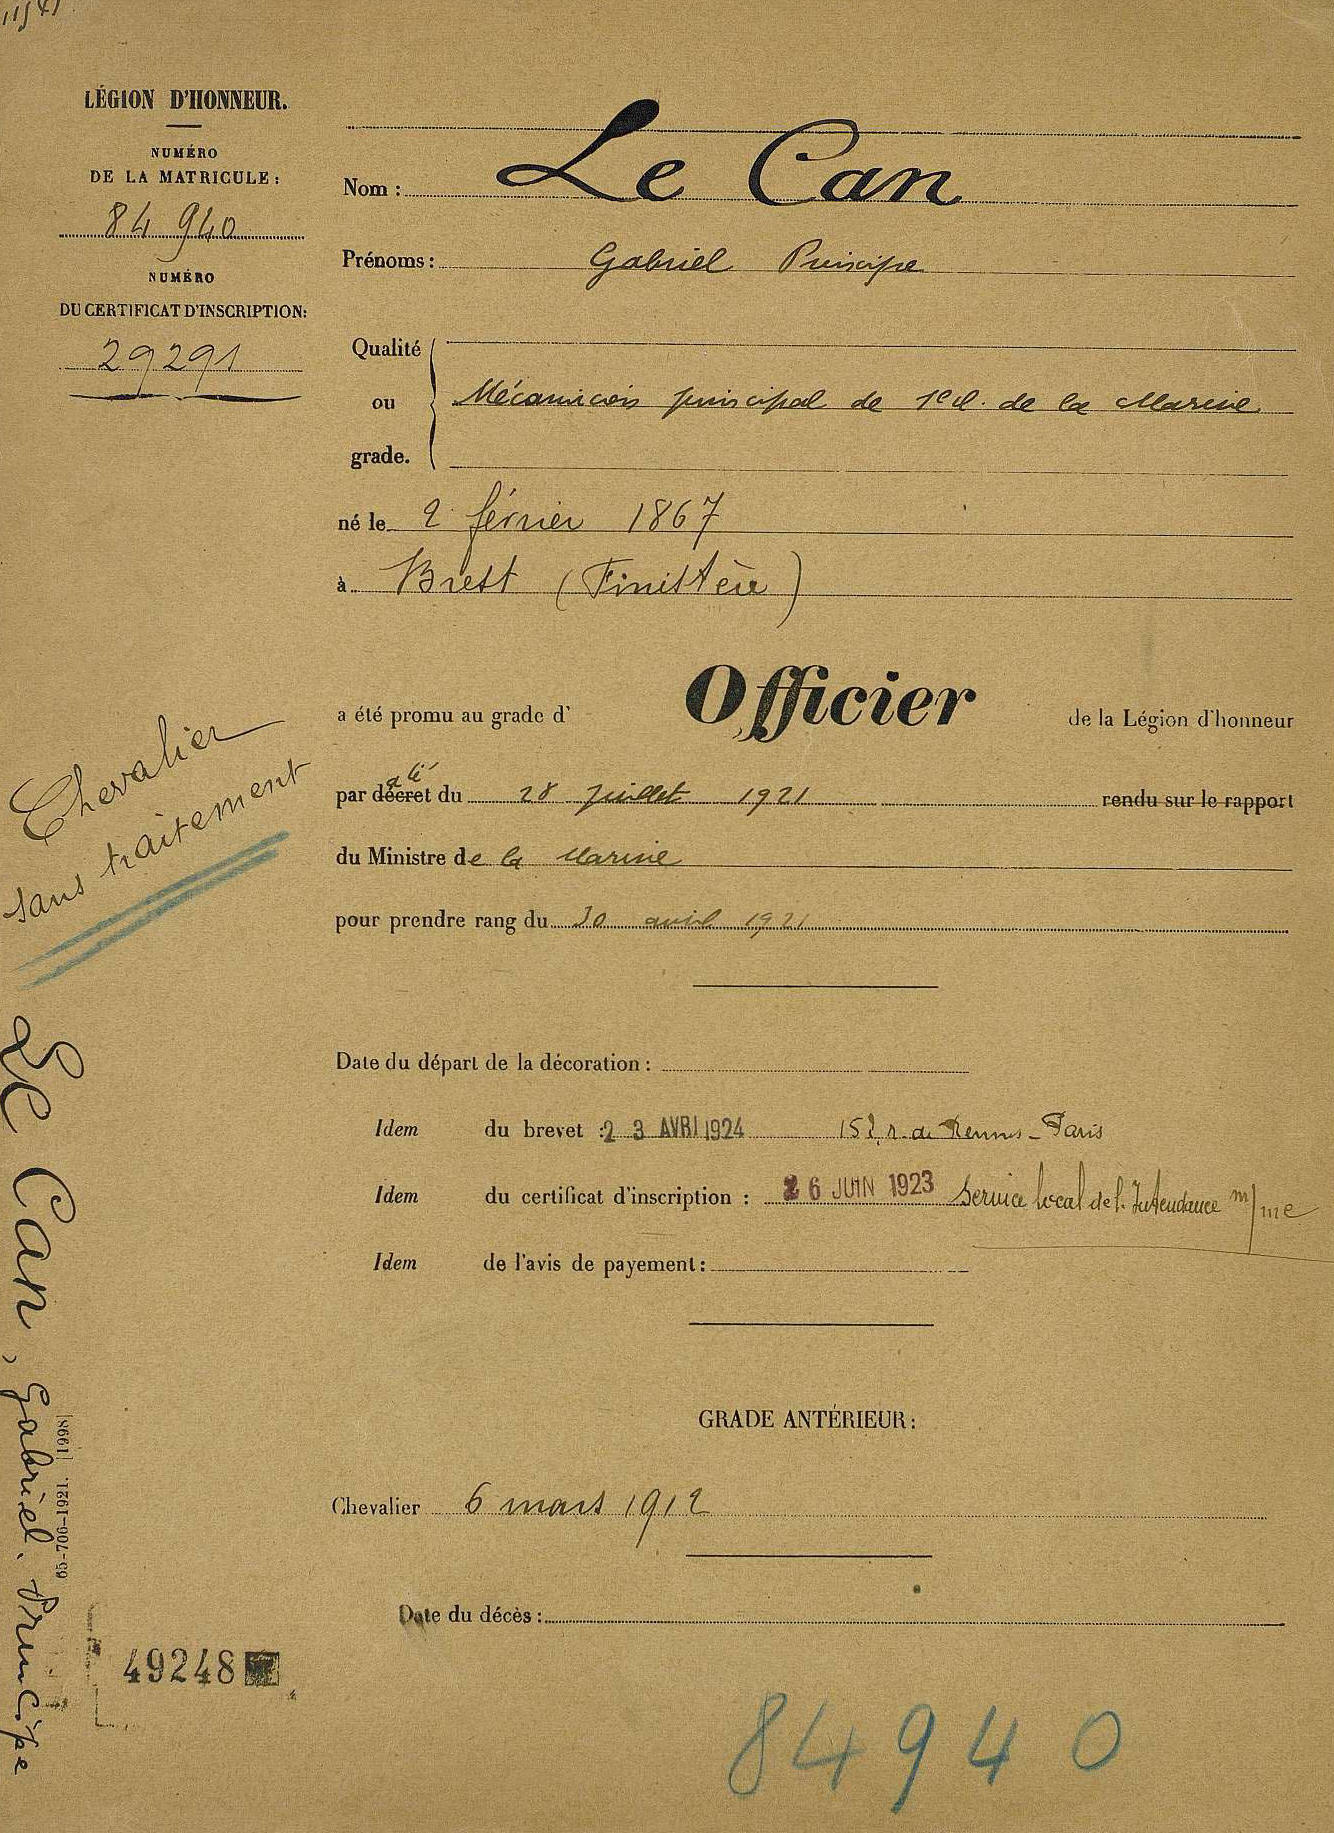 LÉGION D'HONNEUR.
NUMÉRO
DE LA MATRICULE :
84 940
NUMÉRO
DU CERTIFICAT D'INSCRIPTION:
29291
Nom : Le Can
Prénoms : Gabriel Principe
Qualité
ou Mécanicien principal de 1e cl. de la Marine
grade.
né le 2 février 1867
à Brest (Finistère)
a été promu au grade d' Officier de la Légion d'honneur
par décret du 28 juillet 1921 rendu sur le rapport
du Ministre de la Marine
pour prendre rang du 30 avril 1921
Chevalier
sans traitement
Date du départ de la décoration :
Idem du brevet : 23 AVRI 1924 152, r. de Rennes - Paris
Idem du certificat d'inscription : 26 JUIN 1923 Service local de l'Intendance m/me
Idem de l'avis de payement :
GRADE ANTÉRIEUR :
Chevalier 6 mars 1912
Date du décès :
Le Can, Gabriel. Principe
65-706-1921. [1998]
49248
84940